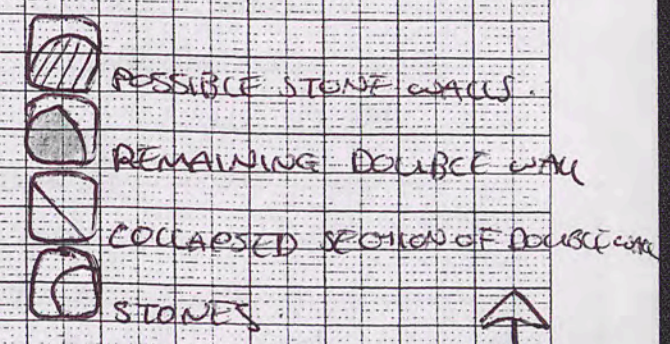 POSSIBLE STONE WALLS.
REMAINING DOUBLE WALL
COLLAPSED SECTION OF DOUBLE WALL
STONES